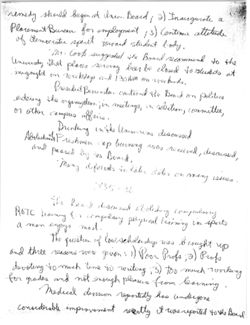 remedy should be ; 2) Inaugurate a
Placement Bureau for employment; 3) Continue attitude
of democratic spirit around student body.
Mr. Cook suggested the Board recommend to the
University that places serving beer be closed to students at
midnight on weekdays and 1 o'clock on weekends.
President cautioned the Board on politics
entering the organization, in meetings, in selection, committees,
or other campus affairs.
Drinking in the Union was discussed
Freshmen was reviewed, discussed,
and passed by the Board.
Many differed in on many issues.
The Board discussed abolishing compulsory
ROTC training & compulsory physical training in sports
a man enjoys most.
The question of was brought up
and three reasons were given: 1) Poor Profs; 2) Profs
devoting too much time to writing; 3) Too much working
for grades and not enough pleasure from learning.
Medical division reportedly has undergone
considerable improvement it was reported to the Board